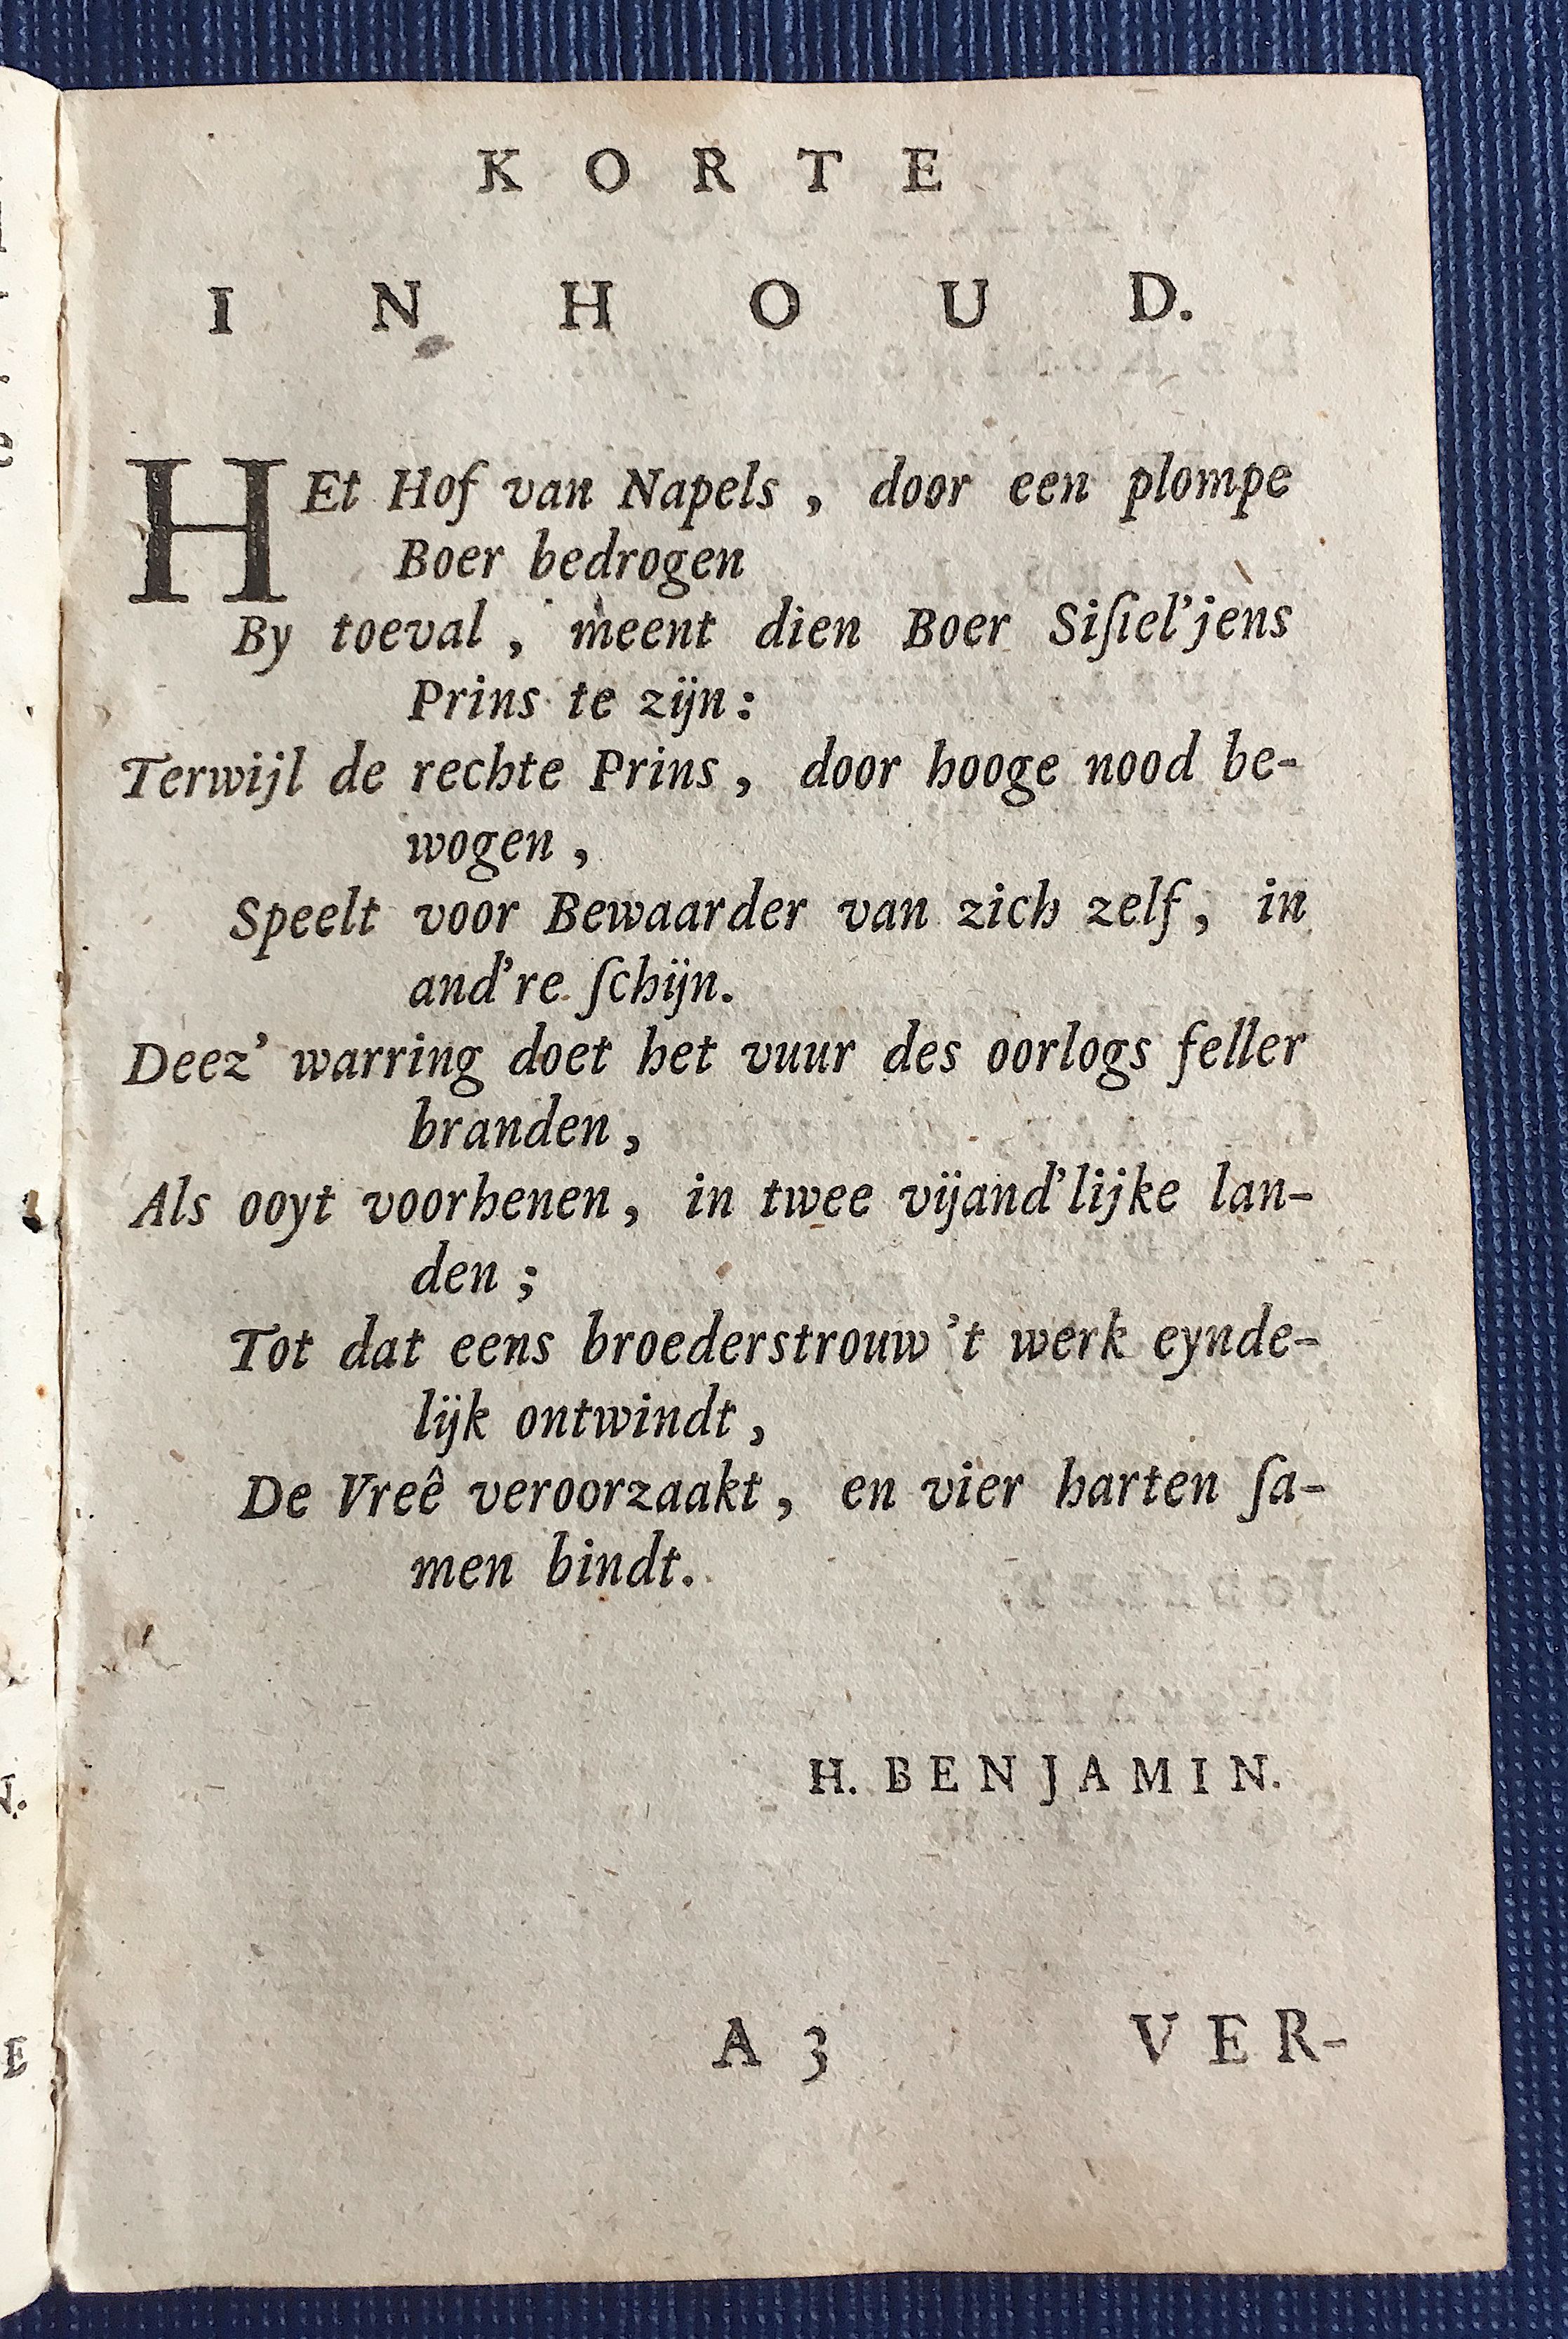 KORTE
INHOUD.
HEt Hof van Napels, door een plompe
Boer bedrogen
By toeval, meent dien Boer Siſiel'jens
Prins te zijn:
Terwijl de rechte Prins, door hooge nood be-
wogen,
Speelt voor Bewaarder van zich zelf, in
and're ſchijn.
Deez' warring doet het vuur des oorlogs feller
branden,
Als ooyt voorhenen, in twee vijand'lijke lan-
den;
Tot dat eens broederstrouw 't werk eynde-
lijk ontwindt,
De Vreê veroorzaakt, en vier harten ſa-
men bindt.
H. BENJAMIN.
A 3 VER-